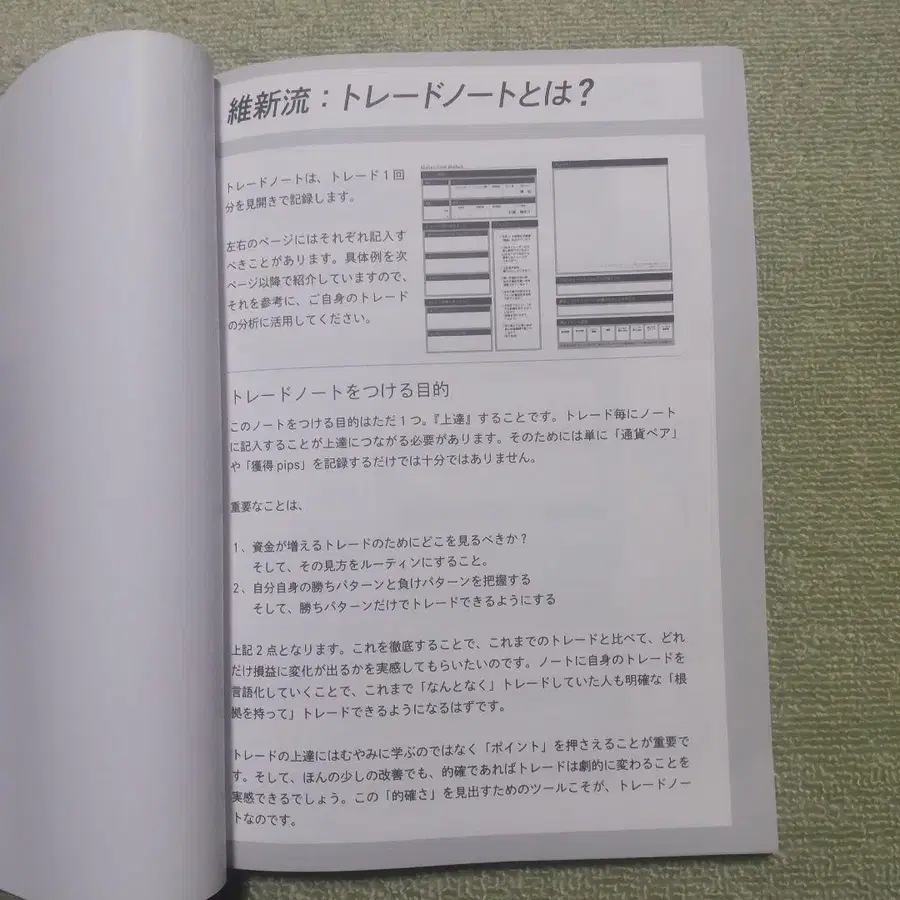 維新流：トレードノートとは？
トレードノートは、トレード1回
分を見開きで記録します。
左右のページにはそれぞれ記入す
べきことがあります。具体例を次
ページ以降で紹介していますので、
それを参考に、ご自身のトレード
の分析に活用してください。
トレードノートをつける目的
このノートをつける目的はただ1つ。『上達』することです。トレード毎にノート
に記入することが上達につながる必要があります。そのためには単に「通貨ペア」
や「獲得 pips」を記録するだけでは十分ではありません。
重要なことは、
1、資金が増えるトレードのためにどこを見るべきか？
そして、その見方をルーティンにすること。
2、自分自身の勝ちパターンと負けパターンを把握する
そして、勝ちパターンだけでトレードできるようにする
上記2点となります。これを徹底することで、これまでのトレードと比べて、どれ
だけ損益に変化が出るかを実感してもらいたいのです。ノートに自身のトレードを
言語化していくことで、これまで「なんとなく」トレードしていた人も明確な「根
拠を持って」トレードできるようになるはずです。
トレードの上達にはむやみに学ぶのではなく「ポイント」を押さえることが重要で
す。そして、ほんの少しの改善でも、的確であればトレードは劇的に変わることを
実感できるでしょう。この「的確さ」を見出すためのツールこそが、トレードノー
トなのです。